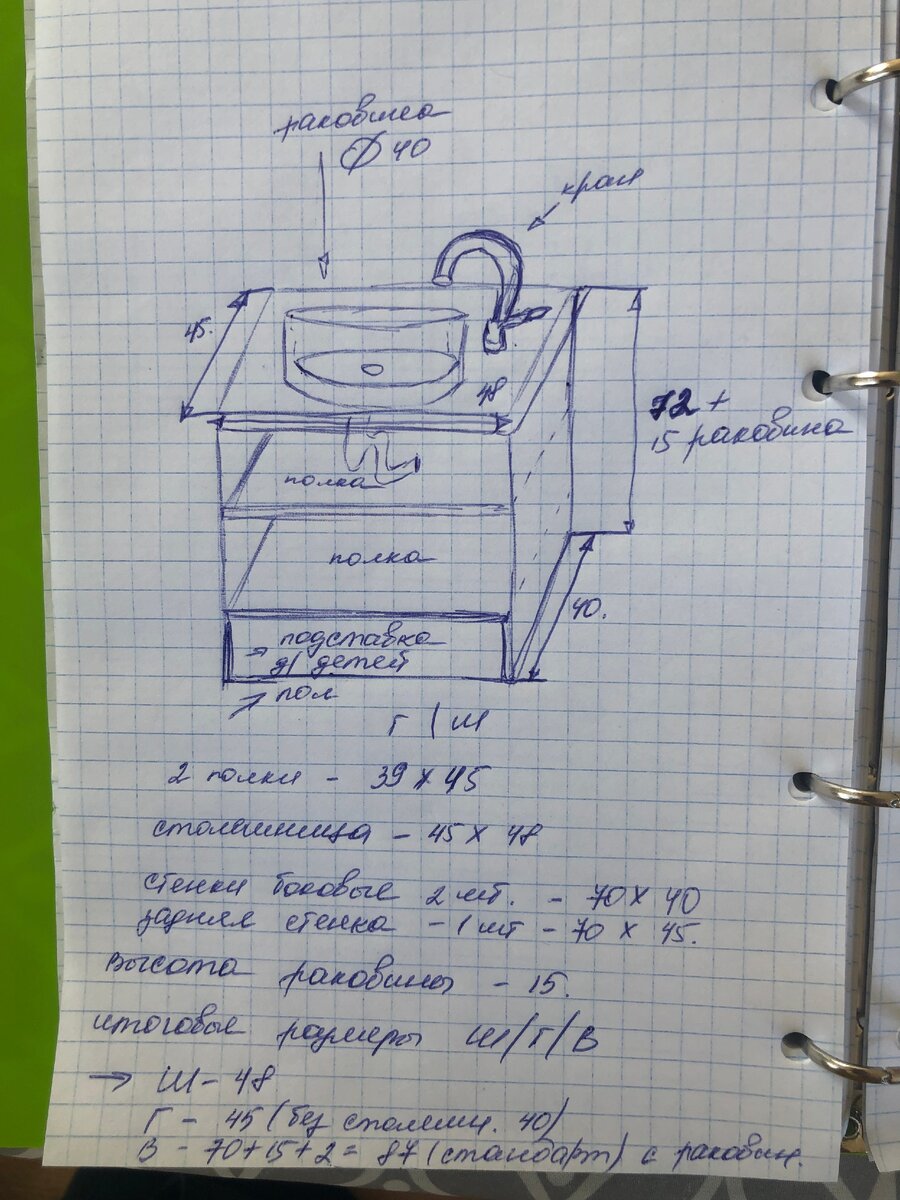 раковина
Ф 40
кран
45.
48
72 +
15 раковина
полка
полка
40.
подставка
д/ детей
пол
Г / Ш
2 полки - 39 х 45
столешница - 45 х 48
стенки боковые 2 шт. - 70 х 40
задняя стенка - 1 шт - 70 х 45.
высота раковины - 15.
итоговые размеры Ш/Г/В
→ Ш - 48
Г - 45 (без столешн. 40)
В - 70+15+2 = 87 (стандарт) с раковин.